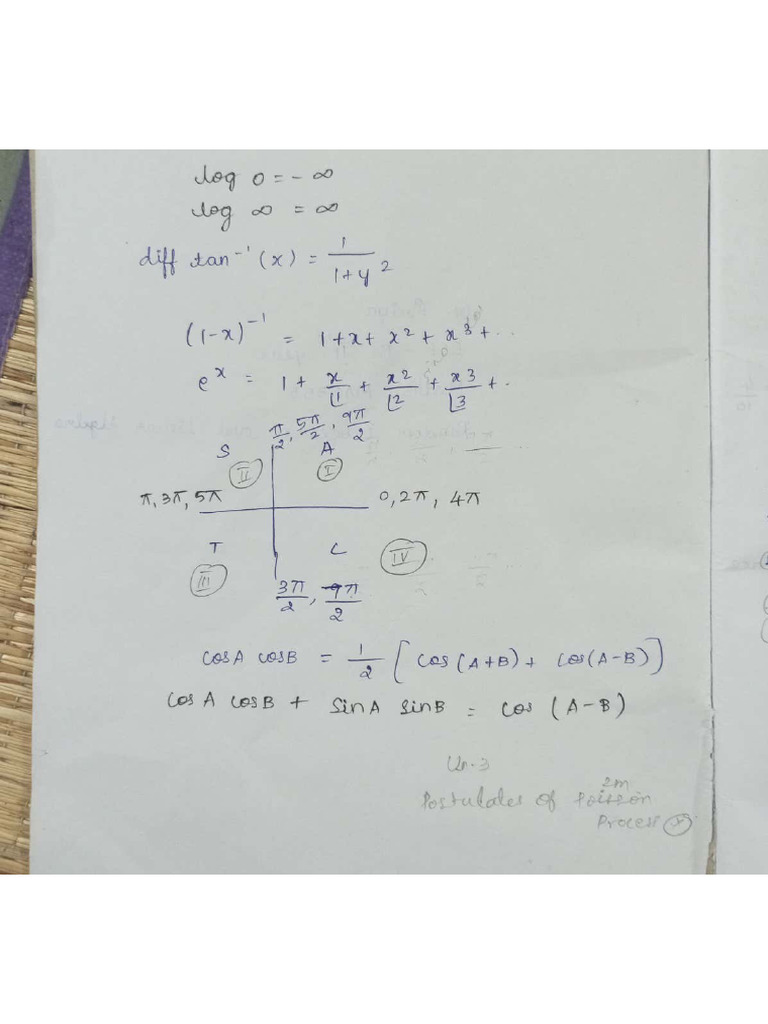 log 0 = - ∞
log ∞ = ∞
diff tan⁻¹ (x) = 1/(1+y²)
(1-x)⁻¹ = 1+x+ x² + x³ + ..
eˣ = 1 + x/⌊1 + x2/⌊2 + x3/⌊3 + .
π/2, 5π/2, 9π/2
S A
II I
π, 3π, 5π 0, 2π, 4π
T C
III IV
3π/2, 9π/2
cosA cosB = 1/2 [ cos(A+B) + cos(A-B) ]
cosA cosB + sinA sinB = cos (A-B)
Un.3
2m
Postulates of Poisson
Process